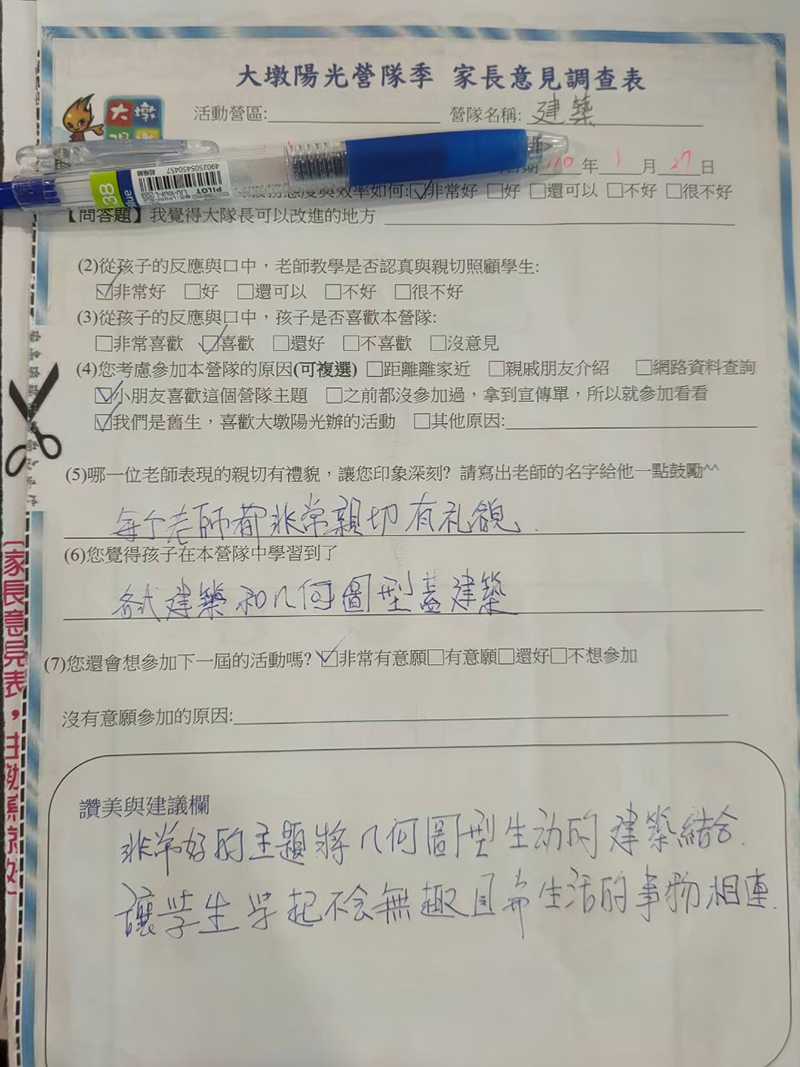 大墩陽光營隊季 家長意見調查表
大墩
陽
活動營區: 營隊名稱: 建築
日期 110 年 1 月 27 日
服務態度與效率如何:☑非常好 □好 □還可以 □不好 □很不好
【問答題】我覺得大隊長可以改進的地方
(2)從孩子的反應與口中，老師教學是否認真與親切照顧學生:
☑非常好 □好 □還可以 □不好 □很不好
(3)從孩子的反應與口中，孩子是否喜歡本營隊:
□非常喜歡 ☑喜歡 □還好 □不喜歡 □沒意見
(4)您考慮參加本營隊的原因(可複選) □距離離家近 □親戚朋友介紹 □網路資料查詢
☑小朋友喜歡這個營隊主題 □之前都沒參加過，拿到宣傳單，所以就參加看看
☑我們是舊生，喜歡大墩陽光辦的活動 □其他原因:
(5)哪一位老師表現的親切有禮貌，讓您印象深刻? 請寫出老師的名字給他一點鼓勵^^
每个老師都非常親切有礼貌.
(6)您覺得孩子在本營隊中學習到了
各式建築和几何圖型蓋建築
(7)您還會想參加下一屆的活動嗎? ☑非常有意願□有意願□還好□不想參加
沒有意願參加的原因:
讚美與建議欄
非常好的主題將几何圖型生动的建築結合.
讓學生学起不会無趣且和生活的事物相連.
家長意見表，
38
blue
PILOT
4902505450457